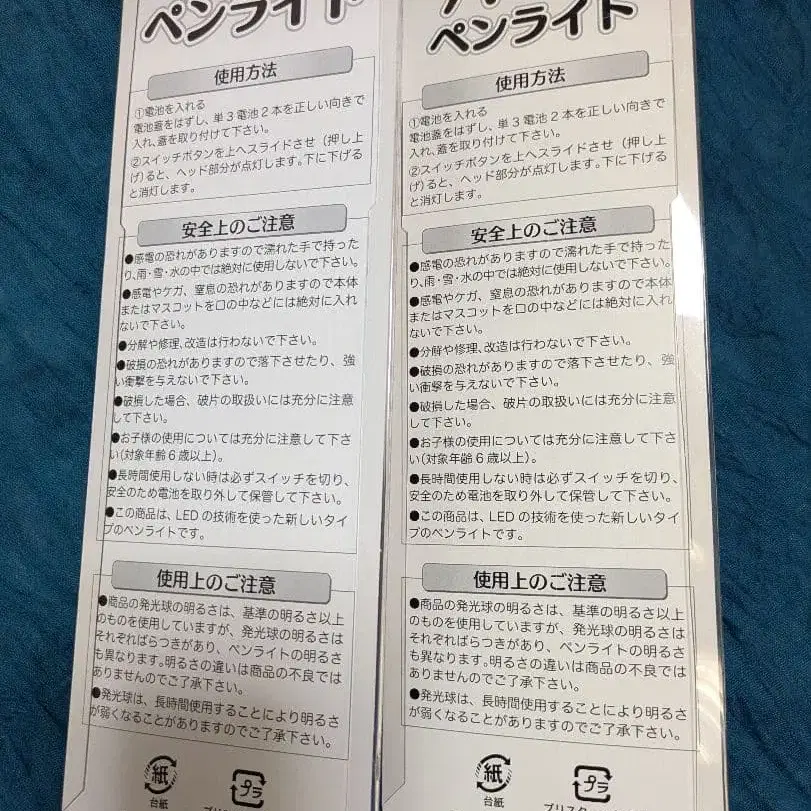 ペンライト
使用方法
①電池を入れる
電池蓋をはずし、単3電池2本を正しい向きで
入れ、蓋を取り付けて下さい。
②スイッチボタンを上へスライドさせ（押し上
げ）ると、ヘッド部分が点灯します。下に下げる
と消灯します。
安全上のご注意
●感電の恐れがありますので濡れた手で持った
り、雨・雪・水の中では絶対に使用しないで下さい。
●感電やケガ、窒息の恐れがありますので本体
またはマスコットを口の中などには絶対に入れ
ないで下さい。
●分解や修理、改造は行わないで下さい。
●破損の恐れがありますので落下させたり、強
い衝撃を与えないで下さい。
●破損した場合、破片の取扱いには充分に注意
して下さい。
●お子様の使用については充分に注意して下さ
い（対象年齢6歳以上）。
●長時間使用しない時は必ずスイッチを切り、
安全のため電池を取り外して保管して下さい。
●この商品は、LEDの技術を使った新しいタイ
プのペンライトです。
使用上のご注意
●商品の発光球の明るさは、基準の明るさ以上
のものを使用していますが、発光球の明るさは
それぞればらつきがあり、ペンライトの明るさ
も異なります。明るさの違いは商品の不良では
ありませんのでご了承下さい。
●発光球は、長時間使用することにより明るさ
が弱くなることがありますのでご了承下さい。
紙
台紙
プラ
ペンライト
使用方法
①電池を入れる
電池蓋をはずし、単3電池2本を正しい向きで
入れ、蓋を取り付けて下さい。
②スイッチボタンを上へスライドさせ（押し上
げ）ると、ヘッド部分が点灯します。下に下げる
と消灯します。
安全上のご注意
●感電の恐れがありますので濡れた手で持った
り、雨・雪・水の中では絶対に使用しないで下さい。
●感電やケガ、窒息の恐れがありますので本体
またはマスコットを口の中などには絶対に入れ
ないで下さい。
●分解や修理、改造は行わないで下さい。
●破損の恐れがありますので落下させたり、強
い衝撃を与えないで下さい。
●破損した場合、破片の取扱いには充分に注意
して下さい。
●お子様の使用については充分に注意して下さ
い（対象年齢6歳以上）。
●長時間使用しない時は必ずスイッチを切り、
安全のため電池を取り外して保管して下さい。
●この商品は、LEDの技術を使った新しいタイ
プのペンライトです。
使用上のご注意
●商品の発光球の明るさは、基準の明るさ以上
のものを使用していますが、発光球の明るさは
それぞればらつきがあり、ペンライトの明るさ
も異なります。明るさの違いは商品の不良では
ありませんのでご了承下さい。
●発光球は、長時間使用することにより明るさ
が弱くなることがありますのでご了承下さい。
紙
台紙
プラ